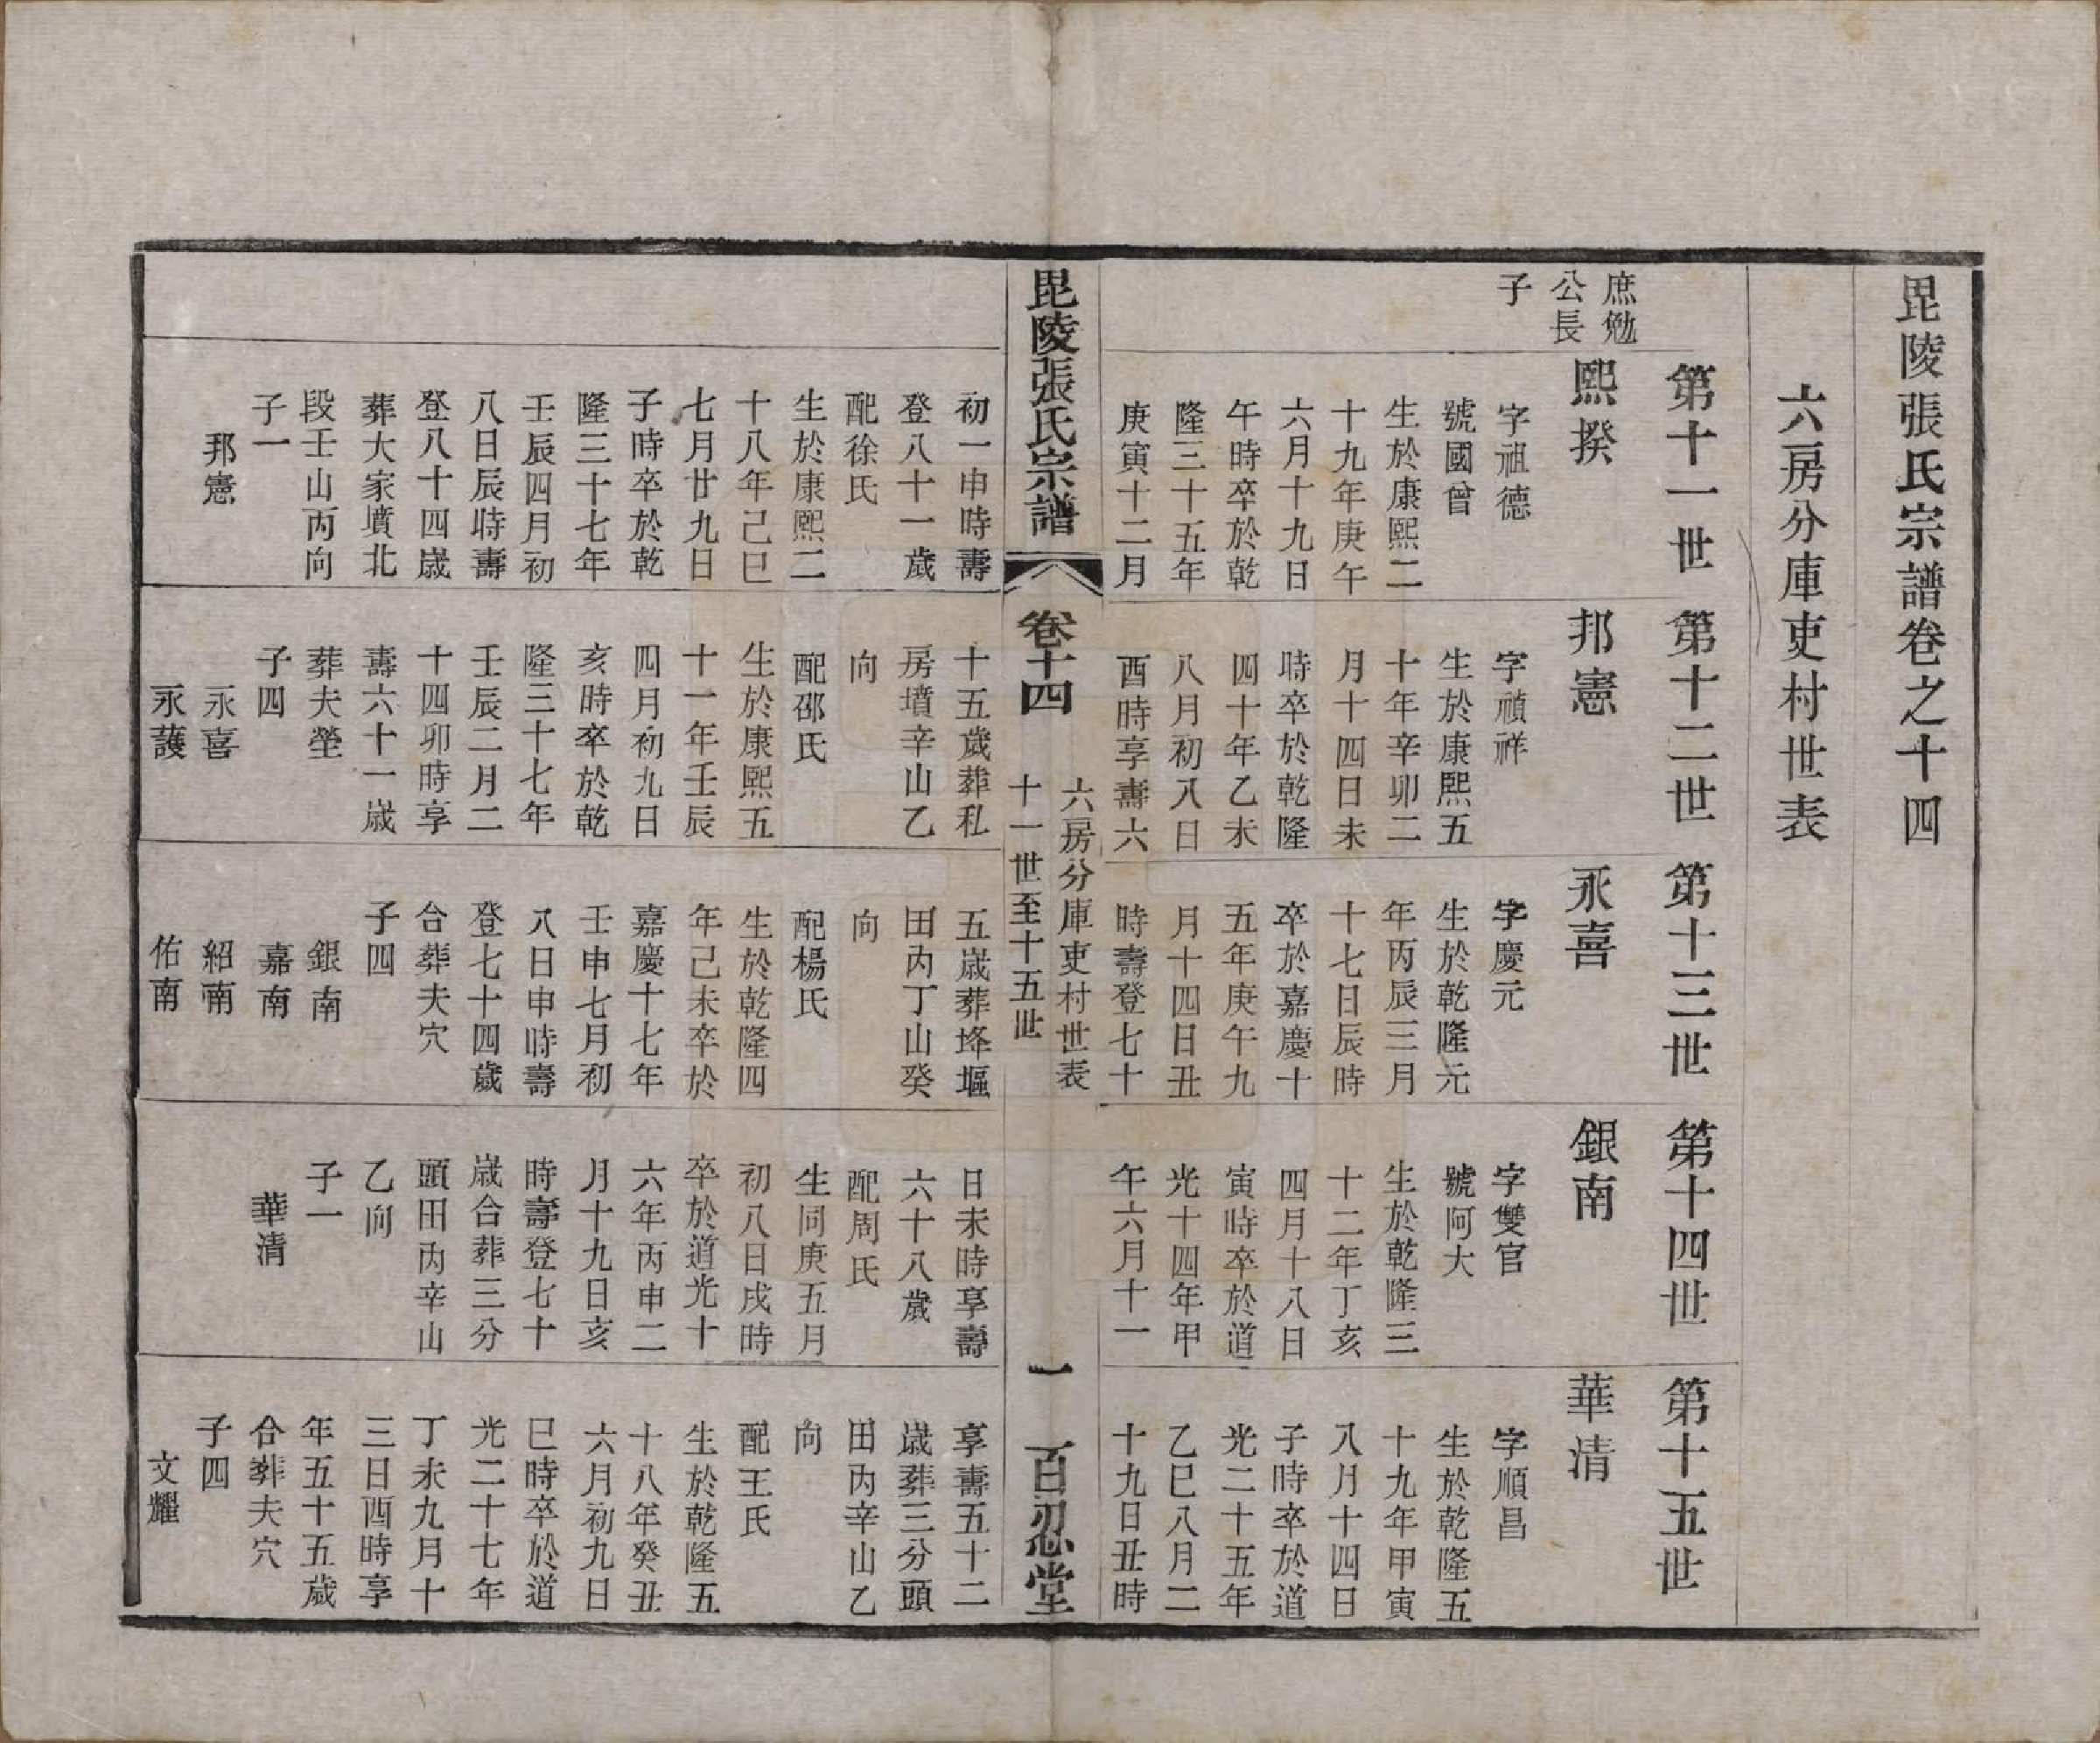 毘陵張氏宗譜卷之十四
六房分庫吏村世表
第十一世
庶勉
公長
子
熙揆
字祖德
號國曾
生於康熙二
十九年庚午
六月十九日
午時卒於乾
隆三十五年
庚寅十二月
初一申時壽
登八十一歲
配徐氏
生於康熙二
十八年己巳
七月廿九日
子時卒於乾
隆三十七年
壬辰四月初
八日辰時壽
登八十四歲
葬大家墳北
段壬山丙向
子一
邦憲
第十二世
邦憲
字禎祥
生於康熙五
十年辛卯二
月十四日未
時卒於乾隆
四十年乙未
八月初八日
酉時享壽六
十五歲葬私
房墳辛山乙
向
配邵氏
生於康熙五
十一年壬辰
四月初九日
亥時卒於乾
隆三十七年
壬辰二月二
十四卯時享
壽六十一歲
葬夫塋
子四
永喜
永護
第十三世
永喜
字慶元
生於乾隆元
年丙辰三月
十七日辰時
卒於嘉慶十
五年庚午九
月十四日丑
時壽登七十
五歲葬垎堰
田丙丁山癸
向
配楊氏
生於乾隆四
年己未卒於
嘉慶十七年
壬申七月初
八日申時壽
登七十四歲
合葬夫穴
子四
銀南
嘉南
紹南
佑南
第十四世
銀南
字雙官
號阿大
生於乾隆三
十二年丁亥
四月十八日
寅時卒於道
光十四年甲
午六月十一
日未時享壽
六十八歲
配周氏
生同庚五月
初八日戌時
卒於道光十
六年丙申二
月十九日亥
時壽登七十
歲合葬三分
頭田丙辛山
乙向
子一
華清
第十五世
華清
字順昌
生於乾隆五
十九年甲寅
八月十四日
子時卒於道
光二十五年
乙巳八月二
十九日丑時
享壽五十二
歲葬三分頭
田丙辛山乙
向
配王氏
生於乾隆五
十八年癸丑
六月初九日
巳時卒於道
光二十七年
丁未九月十
三日酉時享
年五十五歲
合葬夫穴
子四
文耀
毘陵張氏宗譜
卷十四
六房分庫吏村世表
十一世至十五世
一
百忍堂